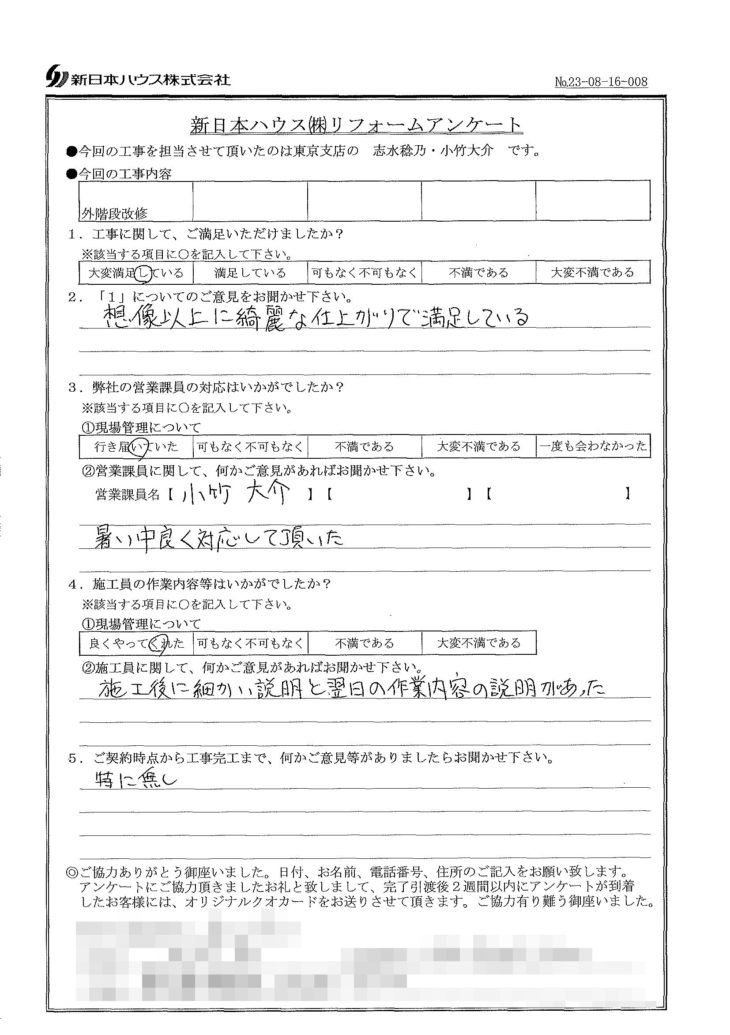 新日本ハウス株式会社
№23-08-16-008
新日本ハウス㈱リフォームアンケート
●今回の工事を担当させて頂いたのは東京支店の 志水稔乃・小竹大介 です。
●今回の工事内容
外階段改修
1．工事に関して、ご満足いただけましたか？
※該当する項目に○を記入して下さい。
大変満足している 満足している 可もなく不可もなく 不満である 大変不満である
2．「1」についてのご意見をお聞かせ下さい。
想像以上に綺麗な仕上がりで満足している
3．弊社の営業課員の対応はいかがでしたか？
※該当する項目に○を記入して下さい。
①現場管理について
行き届いていた 可もなく不可もなく 不満である 大変不満である 一度も会わなかった
②営業課員に関して、何かご意見があればお聞かせ下さい。
営業課員名【 小竹 大介 】【 】【 】
暑い中良く対応して頂いた
4．施工員の作業内容等はいかがでしたか？
※該当する項目に○を記入して下さい。
①現場管理について
良くやってくれた 可もなく不可もなく 不満である 大変不満である
②施工員に関して、何かご意見があればお聞かせ下さい。
施工後に細かい説明と翌日の作業内容の説明があった
5．ご契約時点から工事完工まで、何かご意見等がありましたらお聞かせ下さい。
特に無し
◎ご協力ありがとう御座いました。日付、お名前、電話番号、住所のご記入をお願い致します。
アンケートにご協力頂きましたお礼と致しまして、完了引渡後２週間以内にアンケートが到着
したお客様には、オリジナルクオカードをお送りさせて頂きます。ご協力有り難う御座いました。